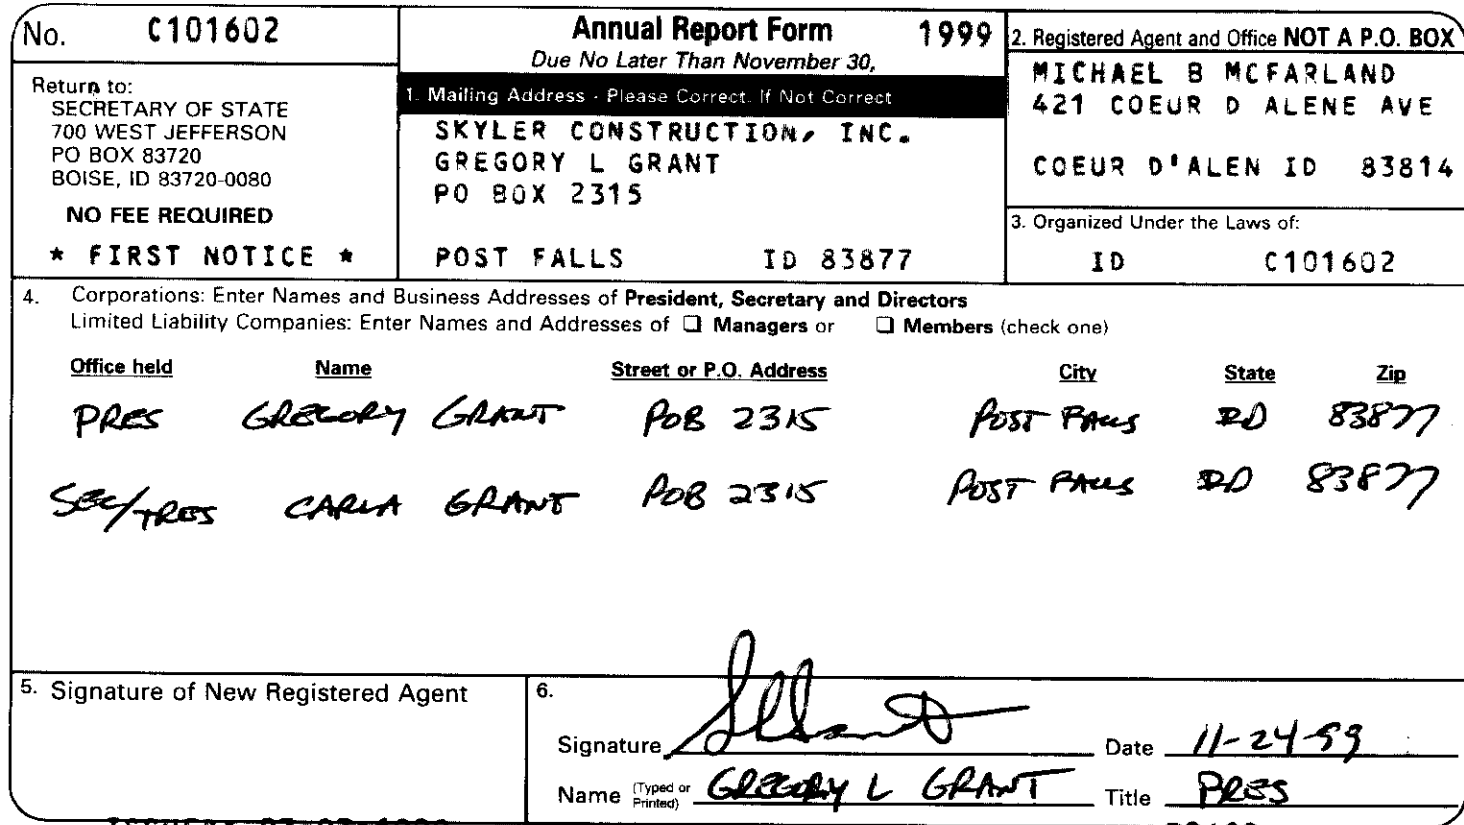 No. C101602
Return to:
SECRETARY OF STATE
700 WEST JEFFERSON
PO BOX 83720
BOISE, ID 83720-0080
NO FEE REQUIRED
* FIRST NOTICE *
Annual Report Form 1999
Due No Later Than November 30,
1. Mailing Address - Please Correct. If Not Correct
SKYLER CONSTRUCTION, INC.
GREGORY L GRANT
PO BOX 2315
POST FALLS ID 83877
2. Registered Agent and Office NOT A P.O. BOX
MICHAEL B MCFARLAND
421 COEUR D ALENE AVE
COEUR D'ALEN ID 83814
3. Organized Under the Laws of:
ID C101602
4. Corporations: Enter Names and Business Addresses of President, Secretary and Directors
Limited Liability Companies: Enter Names and Addresses of ☐ Managers or ☐ Members (check one)
Office held Name Street or P.O. Address City State Zip
PRES GREGORY GRANT POB 2315 POST FALLS ID 83877
SEC/TRES CARLA GRANT POB 2315 POST FALLS ID 83877
5. Signature of New Registered Agent
6.
Signature Date 11-24-99
Name (Typed or Printed) GREGORY L GRANT Title PRES